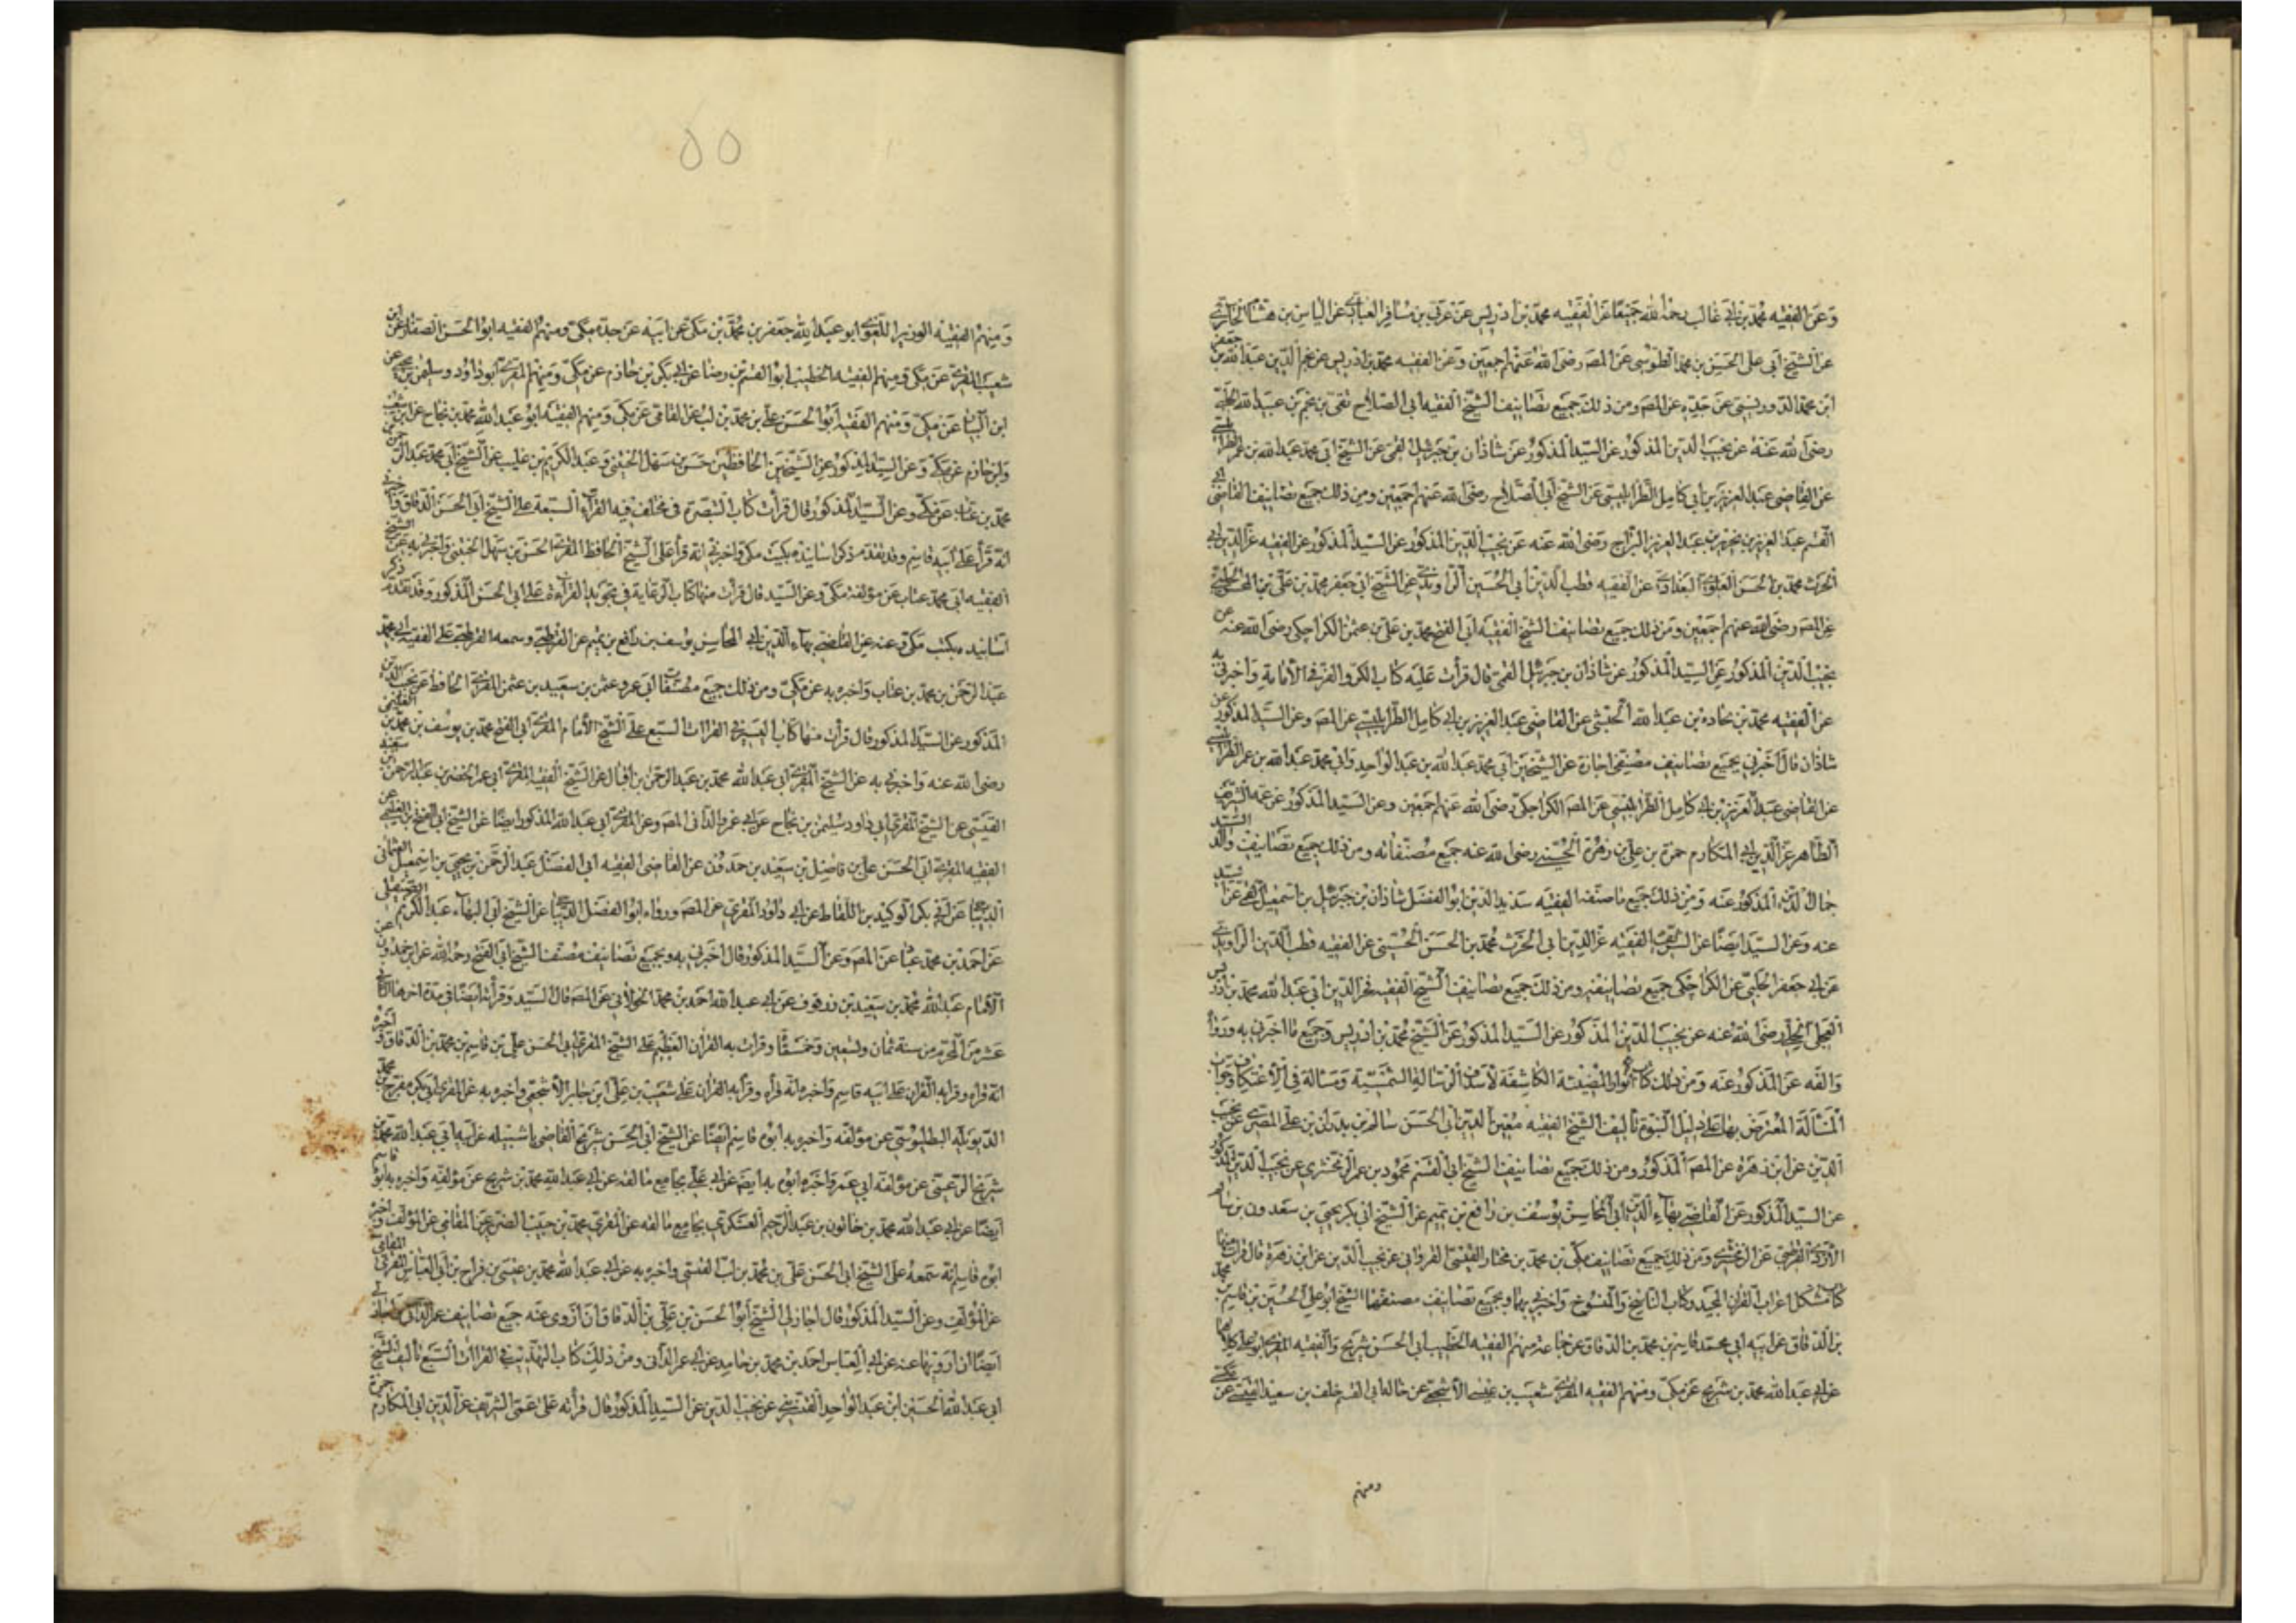 وعن الفقيه محمد بن ابي غالب رحمه الله جميعا عن الفقيه محمد بن ادريس عن عربي بن مسافر العبادي عن الياس بن هشام الحائري
عن الشيخ ابي علي الحسن بن محمد الطوسي عن المص رضي الله عنهم اجمعين وعن الفقيه محمد بن ادريس عن نجم الدين عبد الله بن جعفر
ابن محمد الدوريستي عن جده عن المص ومن ذلك جميع تصانيف الشيخ الفقيه ابي الصلاح تقي بن نجم بن عبيد الله الحلبي
رضي الله عنه عن نجيب الدين المذكور عن السيد المذكور عن شاذان بن جبرئيل القمي عن الشيخ ابي محمد عبد الله بن عمر الطرابلسي
عن القاضي عبد العزيز بن ابي كامل الطرابلسي عن الشيخ ابي الصلاح رضي الله عنهم اجمعين ومن ذلك جميع تصانيف القاضي ابي
القسم عبد العزيز بن نحرير بن عبد العزيز البراج رضي الله عنه عن نجيب الدين المذكور عن السيد المذكور عن الفقيه عز الدين ابي
الحرث محمد بن الحسن العلوي البغدادي عن الفقيه قطب الدين ابي الحسين الراوندي عن الشيخ ابي جعفر محمد بن علي بن المحسن الحلبي
عن المص رضي الله عنهم اجمعين ومن ذلك جميع تصانيف الشيخ الفقيه ابي الفتح محمد بن علي بن عثمن الكراجكي رضي الله عنه عن
نجيب الدين المذكور عن السيد المذكور عن شاذان بن جبرئيل القمي قال قرأت عليه كتاب الكر والفر في الامامة واخبرني به
عن الفقيه محمد بن عبد الله الحبشي عن القاضي عبد العزيز بن ابي كامل الطرابلسي عن المص وعن السيد المذكور عن
شاذان قال اخبرني بجميع تصانيف مصنفه اجازة عن الشيخين ابي محمد عبد الله بن عبد الواحد وابي محمد عبد الله بن عمر الطرابلسي
عن القاضي عبد العزيز بن ابي كامل الطرابلسي عن المص الكراجكي رضي الله عنهم اجمعين وعن السيد المذكور عن عمه الشريف
الطاهر عز الدين ابي المكارم حمزة بن علي بن زهرة الحسيني رضي الله عنه جميع مصنفاته ومن ذلك جميع تصانيف والد السيد
جمال الدين المذكور عنه ومن ذلك جميع ما صنفه الفقيه سديد الدين ابو الفضل شاذان بن جبرئيل بن اسمعيل القمي عن السيد
عنه وعن السيد ايضا عن الشريف الفقيه عز الدين ابي الحرث محمد بن الحسن الحسيني عن الفقيه قطب الدين الراوندي
عن ابي جعفر الحلبي عن الكراجكي جميع تصانيفه ومن ذلك جميع تصانيف الشيخ الفقيه فخر الدين ابي عبد الله محمد بن ادريس
العجلي الحلي رضي الله عنه عن نجيب الدين المذكور عن السيد المذكور عن الشيخ محمد بن ادريس وجميع ما اخبرني به ورواه
والفه عن المذكور عنه ومن ذلك كتاب الانوار المضيئة الكاشفة لاسداف الرسالة الشمسية ومسالة في الاعتكاف وجواب
المسألة المعترض بها على دليل النبوة تأليف الشيخ الفقيه معين الدين ابي الحسن سالم بن بدران بن علي المصري عن نجيب
الدين عن ابن زهرة عن المص المذكور ومن ذلك جميع تصانيف الشيخ ابي القسم محمود بن عمر الزمخشري عن نجيب الدين المذكور
عن السيد المذكور عن القاضي بهاء الدين ابي المحاسن يوسف بن رافع بن تميم عن الشيخ ابي بكر يحيى بن سعدون بن تمام
الازدي القرطبي عن الزمخشري ومن ذلك جميع تصانيف مكي بن محمد بن مختار القيسي القيرواني عن نجيب الدين عن ابن زهرة قال قرأت منها
كتاب مشكل اعراب القران المجيد وكتاب الناسخ والمنسوخ واخبرني بهما وبجميع تصانيف مصنفهما الشيخ ابو علي الحسين بن قاسم بن محمد
بن الدقاق عن ابيه ابي محمد قاسم بن محمد بن الدقاق عن جماعة منهم الفقيه الخطيب ابي الحسن شريح والفقيه المقري ابو علي كلاهما
عن ابي عبد الله محمد بن شريح عن مكي ومنهم الفقيه المقري شعيب بن عيسى الاشجعي عن خاله ابي القسم خلف بن سعيد القيسي عن مكي
ومنهم
٥٥
ومنهم الفقيه الوزير اللغوي ابو عبد الله جعفر بن محمد بن مكي عن ابيه عن جده مكي ومنهم الفقيه ابو الحسن الصفار عن ابن
شعيب المقري عن مكي ومنهم الفقيه الخطيب ابو القسم بن رضا عن ابي بكر بن حازم عن مكي ومنهم المقري ابو داود وسليمن بن يحيى عن
ابن البياز عن مكي ومنهم الفقيه ابو الحسن علي بن محمد بن لب عن المقامي عن مكي ومنهم الفقيه ابو عبد الله محمد بن نجاح عن ابن شعيب
وابن حازم عن مكي وعن السيد المذكور عن الشيخين الحافظين حسن بن سهل الخشني وعبد الكريم بن غليب عن الشيخ ابي محمد عبد الرحمن بن
محمد بن عتاب عن مكي وعن السيد المذكور قال قرأت كتاب التبصرة في مختلف فيه القراء السبعة على الشيخ ابي الحسن الدقاق واخبرني
انه قرأ على ابيه قاسم وقد تقدم ذكر اسانيده بكتب مكي واخبرني انه قرأ على الشيخ الحافظ المقري الحسن بن سهل الخشني واخبرني به عن الشيخ
الفقيه ابي محمد عتاب عن مؤلفه مكي وعن السيد قال قرأت منها كتاب الرعاية في تجويد القراءة على ابي الحسن المذكور وقد تقدم ذكر
اسانيده بكتب مكي وعنه عن القاضي بهاء الدين ابي المحاسن يوسف بن رافع بن تميم عن القرطبي وسمعه القرطبي على الفقيه ابي محمد
عبد الرحمن بن محمد بن عتاب واخبره به عن مكي ومن ذلك جميع مصنفات ابي عمرو عثمن بن سعيد بن عثمن المقري الحافظ عن نجيب الدين
المذكور عن السيد المذكور قال قرأت منها كتاب التيسير في القراات السبع على الشيخ الامام المقري ابي الفتح محمد بن يوسف بن محمد بن العليمي
رضي الله عنه واخبرني به عن الشيخ المقري ابي عبد الله محمد بن عبد الرحمن بن اقبال عن الشيخ الفقيه المقري ابي عمر الخضر بن عبد الرحمن بن سعيد
القيسي عن الشيخ المقري ابي داود سليمن بن نجاح عن ابي عمرو الداني المص وعن المقري ابي عبد الله المذكور ايضا عن الشيخ ابي الفتح بن العليمي عن
الفقيه المقري ابي الحسن علي بن فاضل بن سعيد بن حمدون عن القاضي الفقيه ابي الفضل عبد الرحمن بن يحيى بن اسمعيل العثماني
الديباجي عن ابي بكر الوكيد بن اللقاط عن ابي داود المقري عن المص ورواه ابو الفضل الديباجي عن الشيخ ابي البهاء عبد الكريم الصقلي
عن احمد بن محمد عن المص وعن السيد المذكور قال اخبرني به وبجميع تصانيف مصنفه الشيخ ابي الفتح رحمه الله عن ابن حمدون عن
الامام عبد الله محمد بن سعيد بن زرقون عن ابي عبد الله احمد بن محمد الخولاني عن المص قال السيد وقرأته ايضا في مدة اخرها الثاني
عشر من المحرم من سنة ثمان وتسعين وخمسمائة وقرأت به القران العظيم على الشيخ المقري ابي الحسن علي بن قاسم بن محمد بن الدقاق واخبره
انه قرأه وقرأ به القران على ابيه قاسم واخبره انه قرأه وقرأ به القران على شعيب بن علي ابن جابر الاشجعي واخبره به عن المقري ابي بكر مفرج بن محمد
الديوبله البطليوسي عن مؤلفه واخبره به ابوه قاسم ايضا عن الشيخ ابي الحسن شريح القاضي باشبيله عن ابيه ابي عبد الله محمد بن
شريح الرعيني عن مؤلفه ابي عمر واخبره ابوه به ايضا عن ابي علي بجامع مالقه عن ابي عبد الله محمد بن شريح عن مؤلفه واخبره به ابو قاسم
ايضا عن ابي عبد الله محمد بن خاتون بن عبد الرحيم العسكري بجامع مالقه عن المقري محمد بن حبيب الضرير عن المقامي عن المؤلف واخبره
ابوه قاسم انه سمعه على الشيخ ابي الحسن علي بن محمد بن لب القيسي واخبره به عن ابي عبد الله محمد بن عيسى بن فراح بن ابي العباس المقري المقامي
عن المؤلف وعن السيد المذكور قال اجازلي الشيخ ابو الحسن بن علي بن الدقاق ان اروي عنه جميع تصانيف عمر الداني
ايضا ان ارويها عنه عن ابي العباس احمد بن محمد بن حامد عن ابي عمر الداني ومن ذلك كتاب المهذب في القراات السبع تأليف الشيخ
ابي عبد الله الحسين ابن عبد الواحد القنسريني عن نجيب الدين عن السيد المذكور قال قرأته على عمي الشريف عز الدين ابي المكارم حمزة